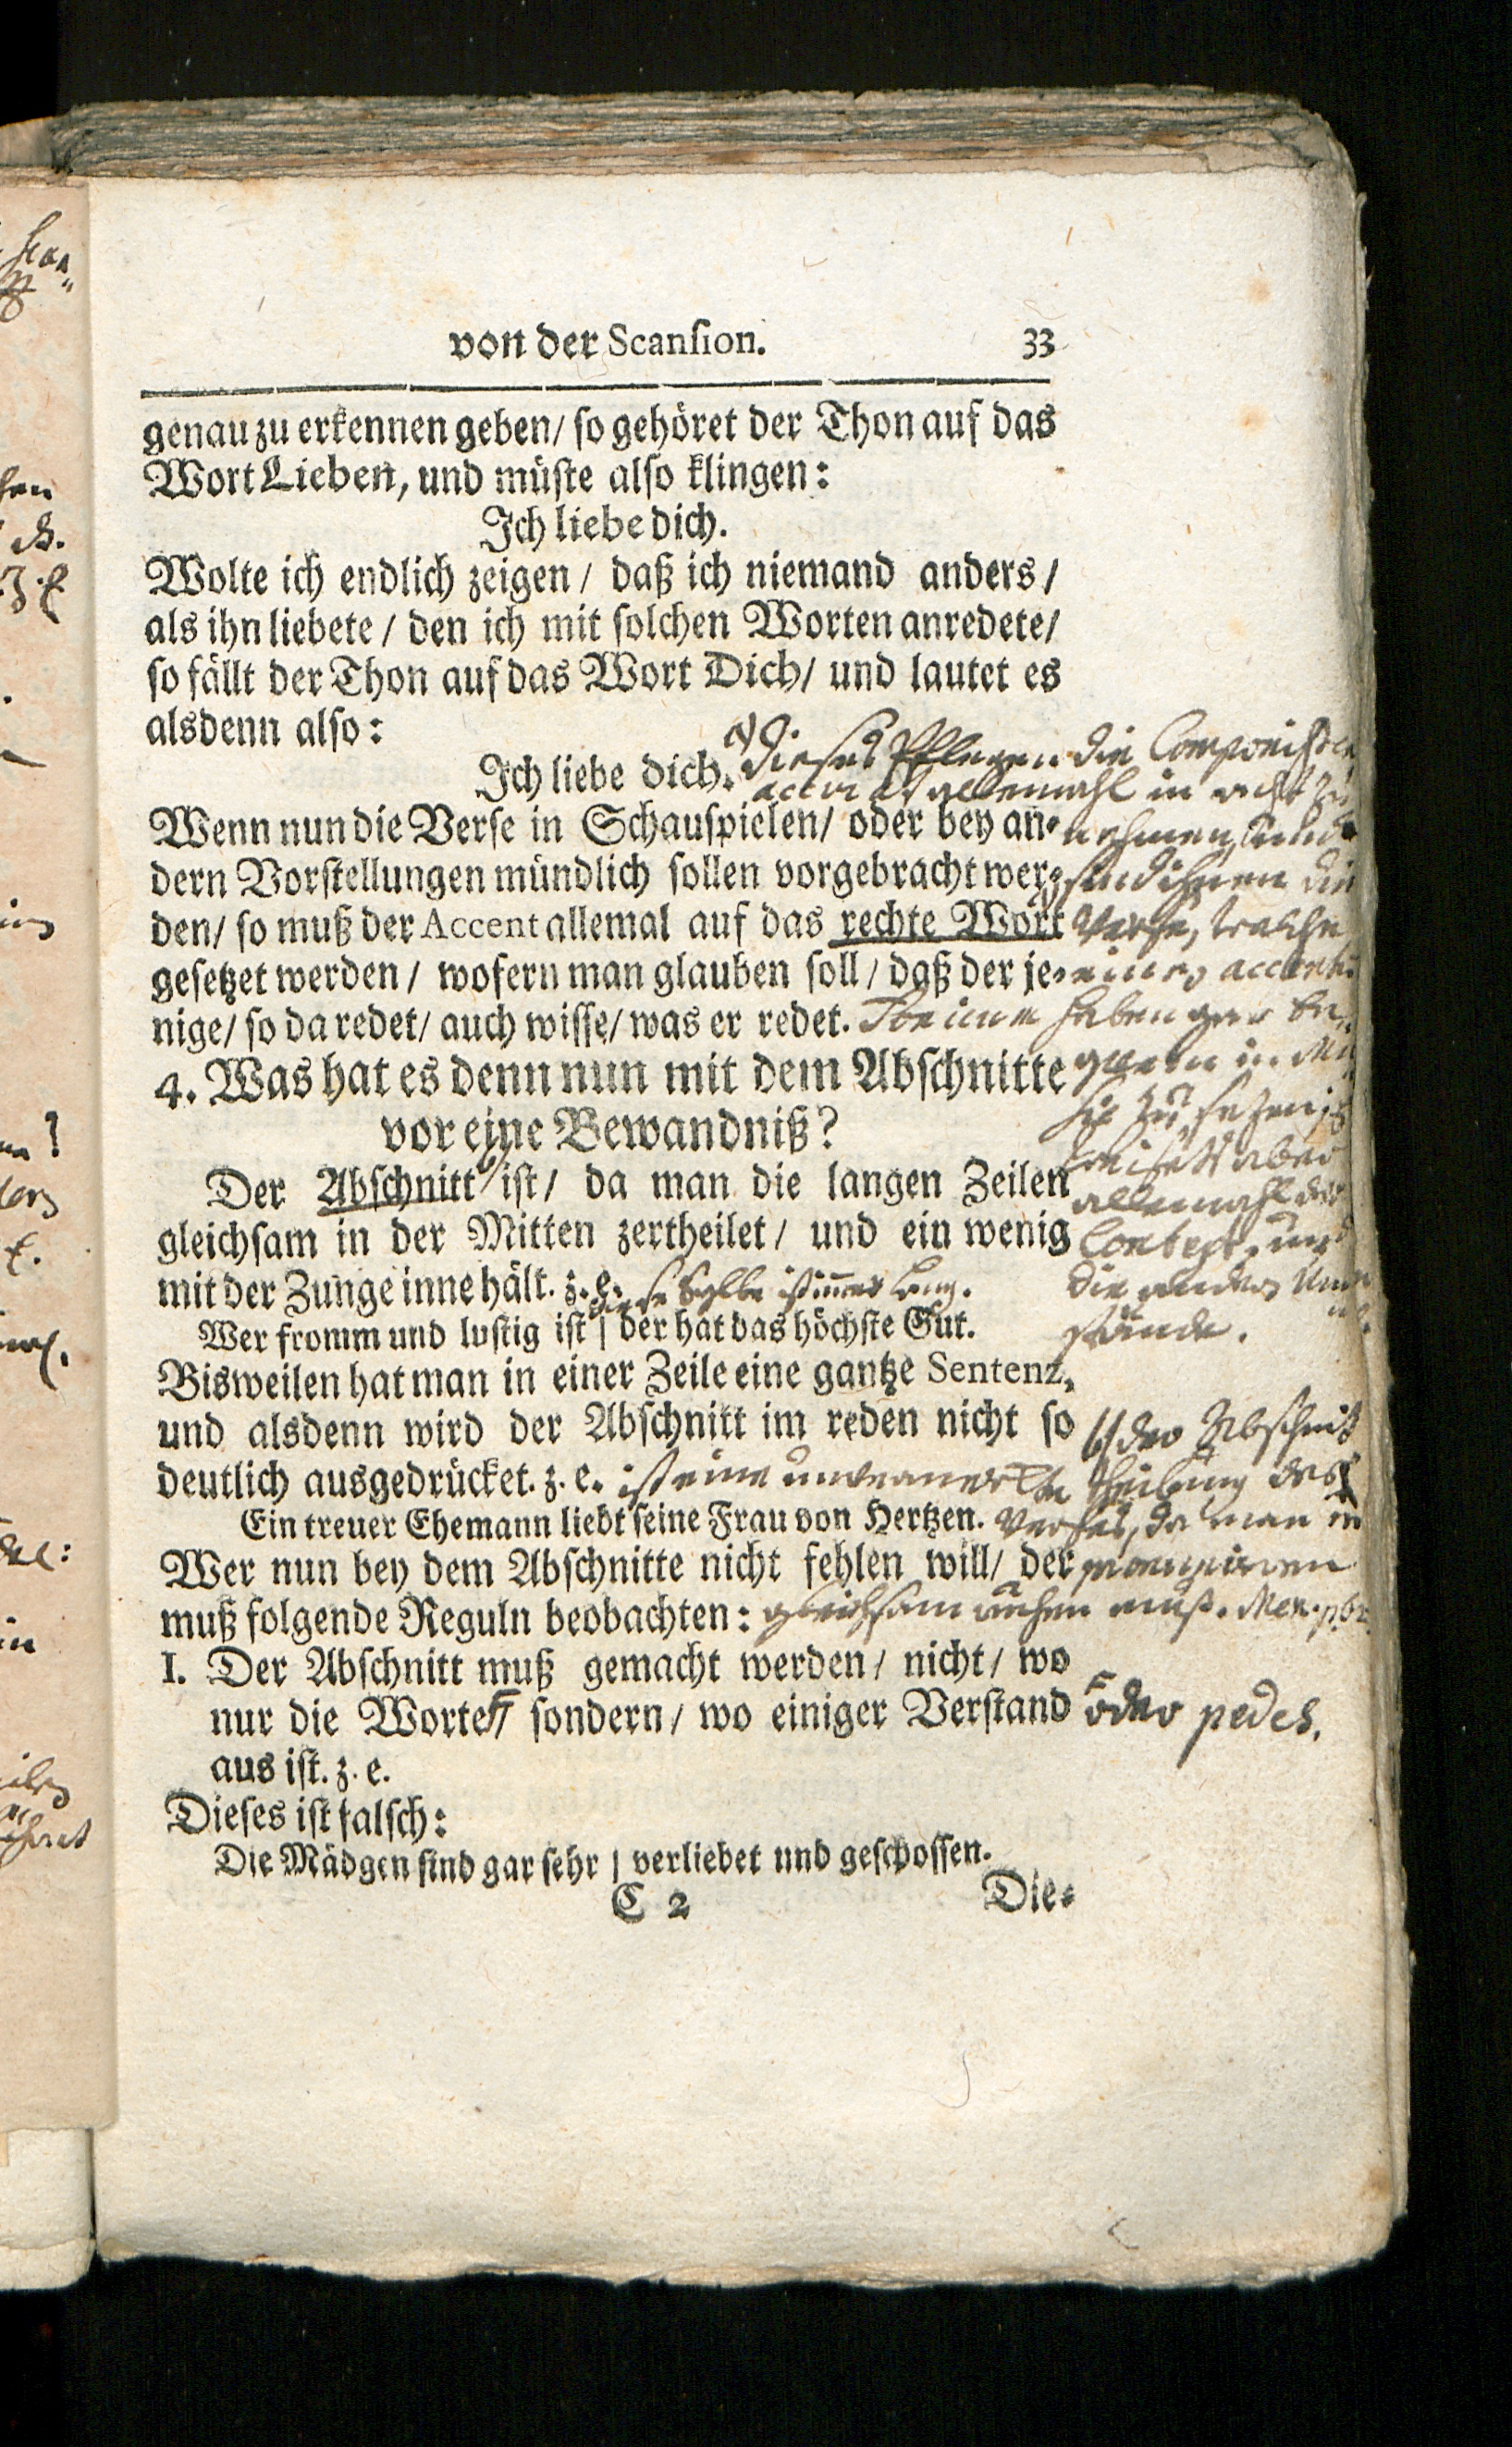 von der Scansion. 33
genau zu erkennen geben/ so gehöret der Thon auf das
Wort Lieben, und müste also klingen:
Ich liebe dich.
Wolte ich endlich zeigen/ daß ich niemand anders/
als ihn liebete/ den ich mit solchen Worten anredete/
so fällt der Thon auf das Wort Dich/ und lautet es
alsdenn also:
Ich liebe dich.
a) dieses Pflegen die Componisten
accurat allemahl in acht zu
nehmen, und
sind ihnen die
Verse, welche
einen accent
haben gar be-
quem in Mu-
sic zu sezen, es
weiset aber
allemahl der
Context, und
die andern Um-
stände.
Wenn nun die Verse in Schauspielen/ oder bey an-
dern Vorstellungen mündlich sollen vorgebracht wer-
den/ so muß der Accent allemal auf das rechte Wort
gesetzet werden/ wofern man glauben soll/ daß der je-
nige/ so da redet/ auch wisse/ was er redet.
4. Was hat es denn nun mit dem Abschnitte
vor eine Bewandniß?
Der Abschnitt b) ist/ da man die langen Zeilen
gleichsam in der Mitten zertheilet/ und ein wenig
mit der Zunge inne hält. z. e.
diese Sylbe ist immer lang.
Wer fromm und lustig ist | der hat das höchste Gut.
Bisweilen hat man in einer Zeile eine gantze Sentenz,
und alsdenn wird der Abschnitt im reden nicht so
deutlich ausgedrücket. z. e.
Ein treuer Ehemann liebt seine Frau von Hertzen.
b) der Abschnitt
ist eine Theilung des
Verses, da man im
gleichsam ruhen muß. Men. p.
Wer nun bey dem Abschnitte nicht fehlen will/ der
muß folgende Reguln beobachten:
I. Der Abschnitt muß gemacht werden/ nicht/ wo
nur die Worte/ sondern/ wo einiger Verstand
oder pedes.
aus ist. z. e.
Dieses ist falsch:
Die Mädgen sind gar sehr | verliebet und geschossen.
C 2 Die-